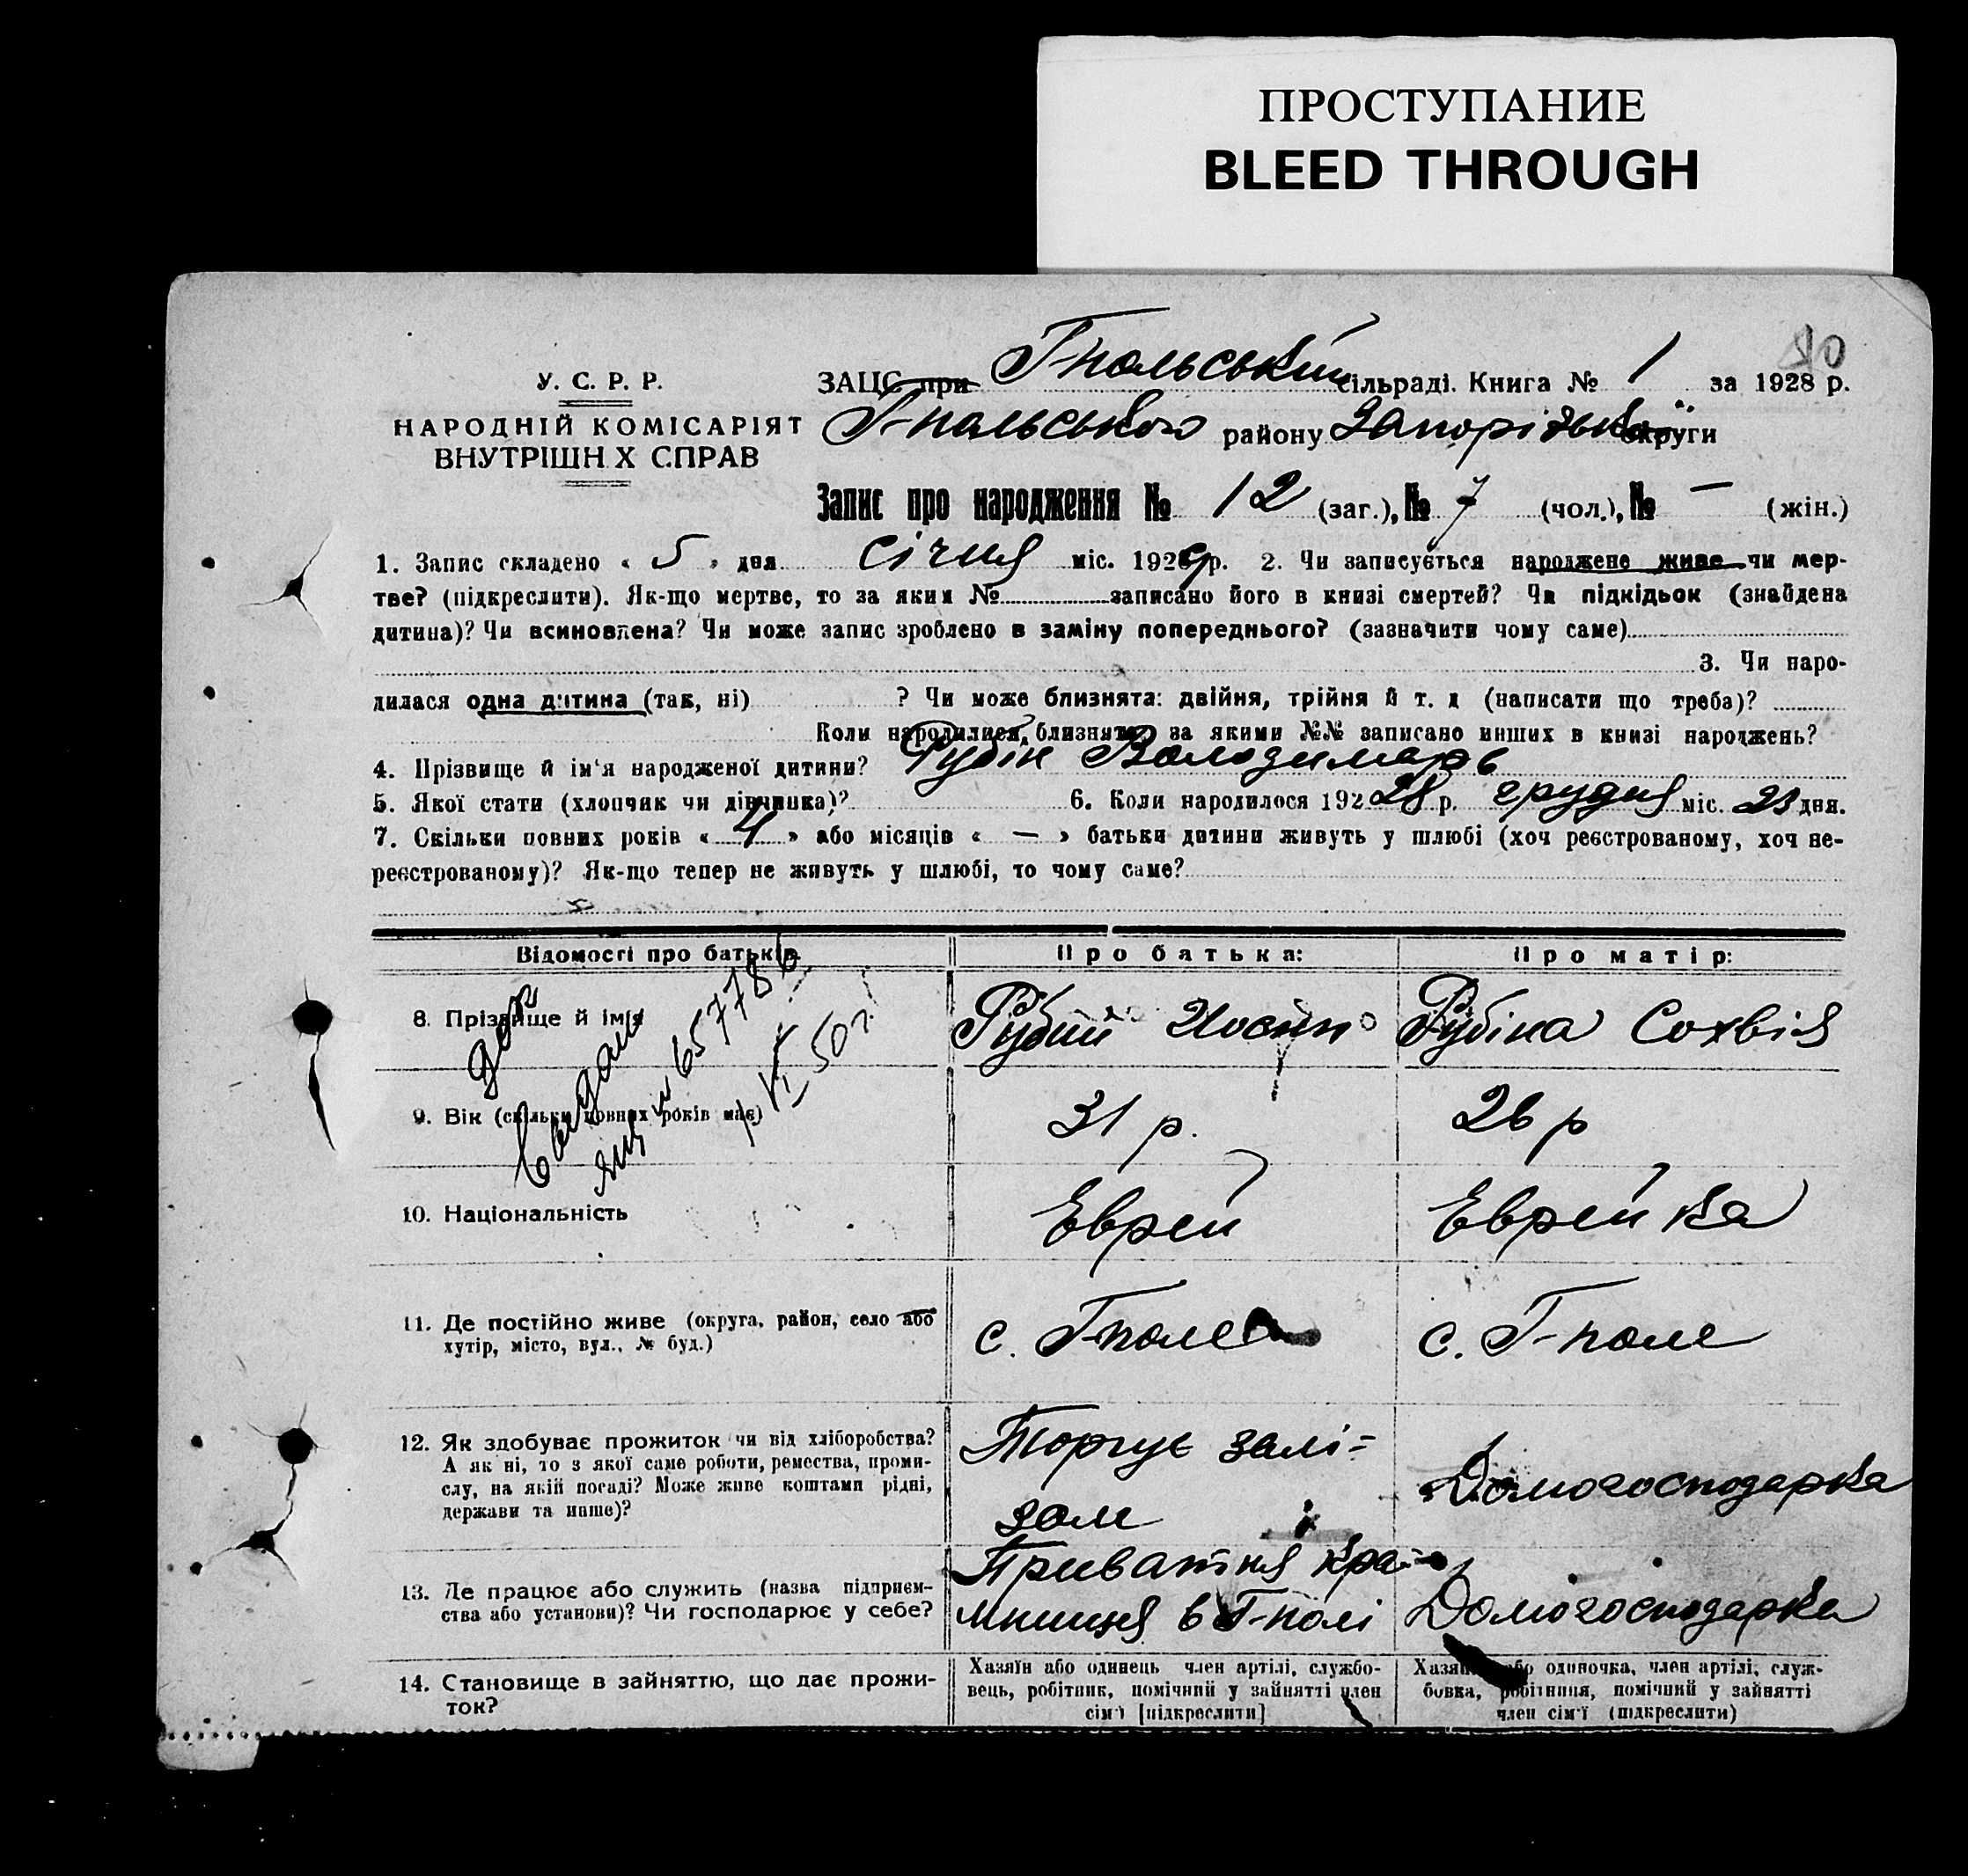 ПРОСТУПАНИЕ
BLEED THROUGH
10
У. С. Р. Р.
НАРОДНІЙ КОМІСАРІЯТ
ВНУТРІШН Х СПРАВ
ЗАЦС при Г-польський сільраді. Книга № 1 за 1928 р.
Г-польського району Запорізької округи
Запис про народження № 12 (заг.), № 7 (чол.), № — (жін.)
1. Запис складено « 5 » дня січня міс. 1929 р. 2. Чи записується народжене живе чи мер-
тве? (підкреслити). Як-що мертве, то за яким № записано його в книзі смертей? Чи підкідьок (знайдена
дитина)? Чи всиновлена? Чи може запис зроблено в заміну попереднього? (зазначити чому саме)
3. Чи наро-
дилася одна дитина (так, ні) ? Чи може близнята: двійня, трійня й т. д (написати що треба)?
Коли народилися близнята, за якими №№ записано инших в книзі народжень?
4. Прізвище й ім'я народженої дитини? Рубін Володимарь
5. Якої стати (хлопчяк чи дівчинка)? 6. Коли народилося 192 28 р. грудня міс. 23 дня.
7. Скільки повних років « 4 » або місяців « — » батьки дитини живуть у шлюбі (хоч реєстрованому, хоч не-
реєстрованому)? Як-що тепер не живуть у шлюбі, то чому саме?
Відомості про батьків. Про батька: Про матір:
8. Прізвище й ім'я Рубин Иосип Рубіна Сохвія
9. Вік (скільки повних років має) 31 р. 26 р
Выдан
657786
VI 50 г.
10. Національність Еврей Еврейка
11. Де постійно живе (округа, район, село або
хутір, місто, вул., № буд.) с. Г-поле с. Г-поле
12. Як здобуває прожиток чи від хліборобства?
А як ні, то з якої саме роботи, ремества, проми-
слу, на якій посаді? Може живе коштами рідні,
держави та инше)?
Торгує залі-
зом
Домогосподарка
13. Де працює або служить (назва підприєм-
ства або установи)? Чи господарює у себе?
Приватня кра-
мниця в Г-полі
Домогосподарка
14. Становище в зайняттю, що дає прожи-
ток?
Хазяїн або одинець член артілі, службо-
вець, робітник, помічний у зайнятті член
сім'ї [підкреслити]
Хазяйка або одиночка, член артілі, служ-
бовка, робітниця, помічний у зайнятті
член сім'ї (підкреслити)